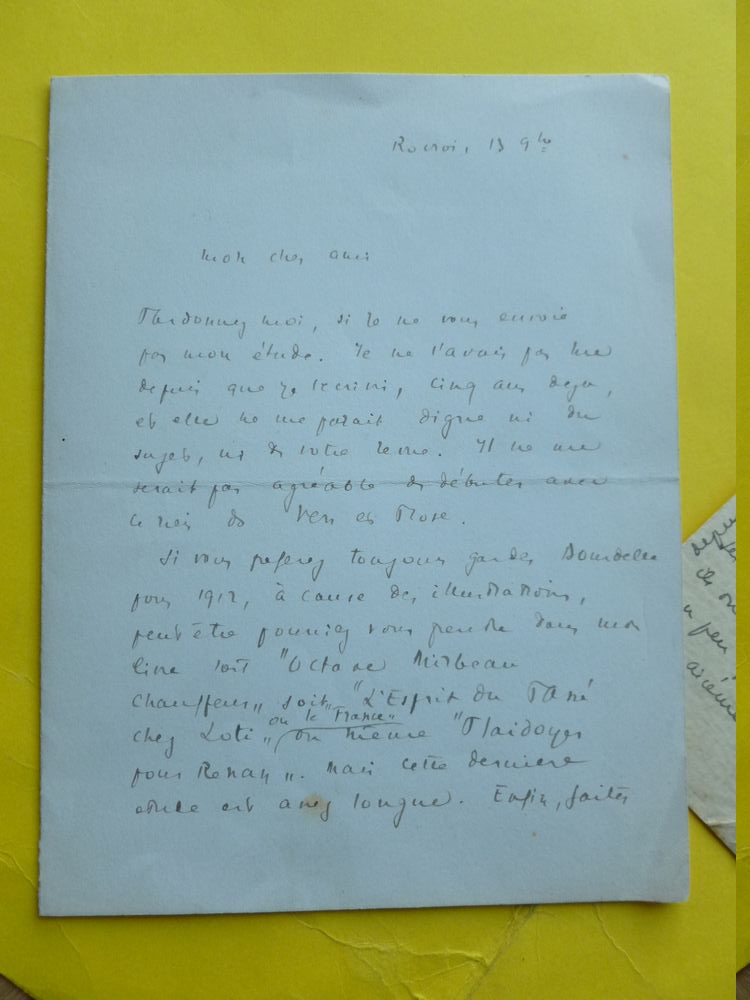 Rocroi, 13 9bre
Mon cher ami
Pardonnez moi, si je ne vous envoie
pas mon étude. Je ne l'avais pas lue
depuis que je l'écrivis, cinq ans déjà,
et elle ne me paraît digne ni du
sujet, ni de votre revue. Il ne me
serait pas agréable de débuter avec
ce rien de Vers et Prose.
Si vous préférez toujours garder Bourdelle
pour 1912, à cause des illustrations,
peut être pourriez vous prendre dans mon
livre soit "Octave Mirbeau
Chauffeur", soit "L'Esprit du Passé
chez Loti" ou même "Plaidoyer
ou le France"
pour Renan". Mais cette dernière
étude est assez longue. Enfin, faites
depuis
ces
un peu